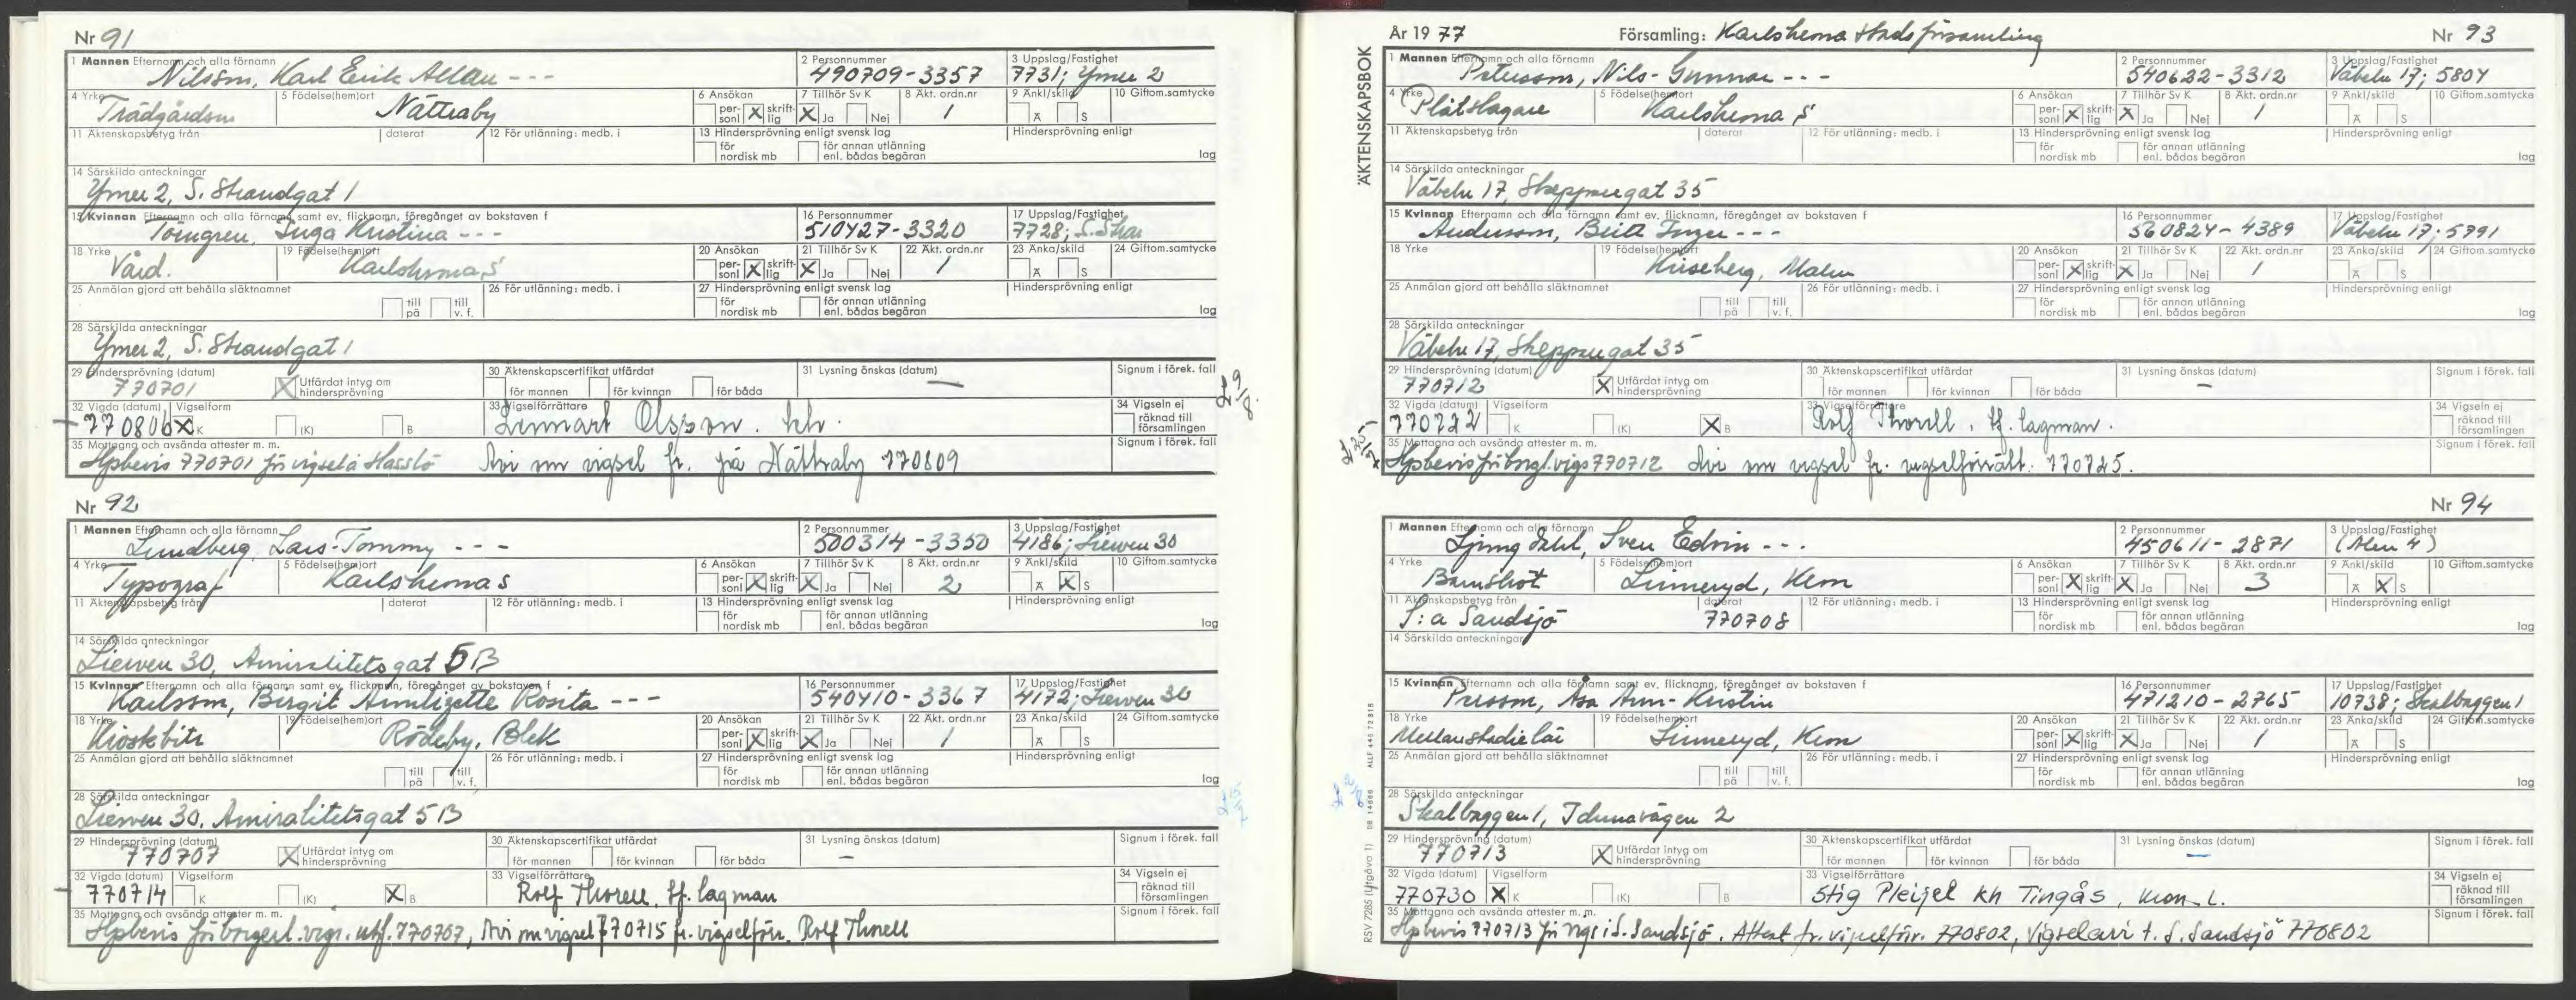 Nr 91
1 Mannen Efternamn och alla förnamn 2 Personnummer 3 Uppslag/Fastighet
Nilsson, Karl Erik Allan - - - 490709-3357 7731; Ymer 2
4 Yrke 5 Födelse(hem)ort 6 Ansökan 7 Tillhör Sv K 8 Äkt. ordn.nr 9 Änkl/skild 10 Giftom.samtycke
Trädgårdsm Nättraby personl X skriftlig X Ja Nej 1 Ä S
11 Äktenskapsbetyg från daterat 12 För utlänning: medb. i 13 Hindersprövning enligt svensk lag Hindersprövning enligt
för nordisk mb för annan utlänning enl. bådas begäran lag
14 Särskilda anteckningar
Ymer 2, S. Strandgat 1
15 Kvinnan Efternamn och alla förnamn samt ev. flicknamn, föregånget av bokstaven f 16 Personnummer 17 Uppslag/Fastighet
Törngren, Inga Kristina - - - 510427-3320 7728; S. Stra
18 Yrke 19 Födelse(hem)ort 20 Ansökan 21 Tillhör Sv K 22 Äkt. ordn.nr 23 Änka/skild 24 Giftom.samtycke
Vård. Karlshamn S personl X skriftlig X Ja Nej 1 Ä S
25 Anmälan gjord att behålla släktnamnet 26 För utlänning: medb. i 27 Hindersprövning enligt svensk lag Hindersprövning enligt
till på till v. f. för nordisk mb för annan utlänning enl. bådas begäran lag
28 Särskilda anteckningar
Ymer 2, S. Strandgat 1
29 Hindersprövning (datum) 30 Äktenskapscertifikat utfärdat 31 Lysning önskas (datum) Signum i förek. fall
770701 X Utfärdat intyg om hindersprövning för mannen för kvinnan för båda —
32 Vigda (datum) Vigselform 33 Vigselförrättare 34 Vigseln ej räknad till församlingen
770806 X K (K) B Lennart Olsson. kh.
35 Mottagna och avsända attester m. m. Signum i förek. fall
Hpbevis 770701 för vigsel i Hasslö Avi om vigsel fr. pä Nättraby 770809
Nr 92
1 Mannen Efternamn och alla förnamn 2 Personnummer 3 Uppslag/Fastighet
Lundberg, Lars-Tommy - - - 500314-3350 4186; Siewen 30
4 Yrke 5 Födelse(hem)ort 6 Ansökan 7 Tillhör Sv K 8 Äkt. ordn.nr 9 Änkl/skild 10 Giftom.samtycke
Typograf Karlshamn S personl X skriftlig X Ja Nej 2 Ä X S
11 Äktenskapsbetyg från daterat 12 För utlänning: medb. i 13 Hindersprövning enligt svensk lag Hindersprövning enligt
för nordisk mb för annan utlänning enl. bådas begäran lag
14 Särskilda anteckningar
Siewen 30, Amiralitetsgat 5 B
15 Kvinnan Efternamn och alla förnamn samt ev. flicknamn, föregånget av bokstaven f 16 Personnummer 17 Uppslag/Fastighet
Karlsson, Birgit Annlizette Rosita - - - 540410-3367 4172; Siewen 30
18 Yrke 19 Födelse(hem)ort 20 Ansökan 21 Tillhör Sv K 22 Äkt. ordn.nr 23 Änka/skild 24 Giftom.samtycke
Kioskbitr Rödeby, Blek personl X skriftlig X Ja Nej 1 Ä S
25 Anmälan gjord att behålla släktnamnet 26 För utlänning: medb. i 27 Hindersprövning enligt svensk lag Hindersprövning enligt
till på till v. f. för nordisk mb för annan utlänning enl. bådas begäran lag
28 Särskilda anteckningar
Siewen 30, Amiralitetsgat 5 B
29 Hindersprövning (datum) 30 Äktenskapscertifikat utfärdat 31 Lysning önskas (datum) Signum i förek. fall
770707 X Utfärdat intyg om hindersprövning för mannen för kvinnan för båda —
32 Vigda (datum) Vigselform 33 Vigselförrättare 34 Vigseln ej räknad till församlingen
770714 K (K) X B Rolf Thorell, tf. lagman
35 Mottagna och avsända attester m. m. Signum i förek. fall
Hpbevis för borgerl. vigs. utf. 770707, Avi om vigsel 770715 fr. vigselförr. Rolf Thorell
ÄKTENSKAPSBOK
År 1977 Församling: Karlshamns stadsförsamling Nr 93
1 Mannen Efternamn och alla förnamn 2 Personnummer 3 Uppslag/Fastighet
Petersson, Nils-Gunnar - - - 540622-3312 Väbeln 17; 5804
4 Yrke 5 Födelse(hem)ort 6 Ansökan 7 Tillhör Sv K 8 Äkt. ordn.nr 9 Änkl/skild 10 Giftom.samtycke
Plåtslagare Karlshamn S personl X skriftlig X Ja Nej 1 Ä S
11 Äktenskapsbetyg från daterat 12 För utlänning: medb. i 13 Hindersprövning enligt svensk lag Hindersprövning enligt
för nordisk mb för annan utlänning enl. bådas begäran lag
14 Särskilda anteckningar
Väbeln 17, Skepparegat 35
15 Kvinnan Efternamn och alla förnamn samt ev. flicknamn, föregånget av bokstaven f 16 Personnummer 17 Uppslag/Fastighet
Andersson, Britt Inger - - - 560824-4389 Väbeln 17; 5791
18 Yrke 19 Födelse(hem)ort 20 Ansökan 21 Tillhör Sv K 22 Äkt. ordn.nr 23 Änka/skild 24 Giftom.samtycke
Kirseberg, Malm personl X skriftlig X Ja Nej 1 Ä S
25 Anmälan gjord att behålla släktnamnet 26 För utlänning: medb. i 27 Hindersprövning enligt svensk lag Hindersprövning enligt
till på till v. f. för nordisk mb för annan utlänning enl. bådas begäran lag
28 Särskilda anteckningar
Väbeln 17, Skepparegat 35
29 Hindersprövning (datum) 30 Äktenskapscertifikat utfärdat 31 Lysning önskas (datum) Signum i förek. fall
770712 X Utfärdat intyg om hindersprövning för mannen för kvinnan för båda —
32 Vigda (datum) Vigselform 33 Vigselförrättare 34 Vigseln ej räknad till församlingen
770722 K (K) X B Rolf Thorell, tf. lagman.
35 Mottagna och avsända attester m. m. Signum i förek. fall
Hpbevis för borgl. vigs 770712 Avi om vigsel fr. vigselförrätt. 770725.
Nr 94
1 Mannen Efternamn och alla förnamn 2 Personnummer 3 Uppslag/Fastighet
Ljungdahl, Sven Edvin - - - 450611-2871 (Alen 4)
4 Yrke 5 Födelse(hem)ort 6 Ansökan 7 Tillhör Sv K 8 Äkt. ordn.nr 9 Änkl/skild 10 Giftom.samtycke
Barnsköt Linneryd, Kron personl X skriftlig X Ja Nej 3 Ä X S
11 Äktenskapsbetyg från daterat 12 För utlänning: medb. i 13 Hindersprövning enligt svensk lag Hindersprövning enligt
S:a Sandsjö 770708 för nordisk mb för annan utlänning enl. bådas begäran lag
14 Särskilda anteckningar
15 Kvinnan Efternamn och alla förnamn samt ev. flicknamn, föregånget av bokstaven f 16 Personnummer 17 Uppslag/Fastighet
Persson, Åsa Ann-Kristin 471210-2765 10738; Skalbaggen 1
18 Yrke 19 Födelse(hem)ort 20 Ansökan 21 Tillhör Sv K 22 Äkt. ordn.nr 23 Änka/skild 24 Giftom.samtycke
Mellanstadielär Linneryd, Kron personl X skriftlig X Ja Nej 1 Ä S
25 Anmälan gjord att behålla släktnamnet 26 För utlänning: medb. i 27 Hindersprövning enligt svensk lag Hindersprövning enligt
till på till v. f. för nordisk mb för annan utlänning enl. bådas begäran lag
28 Särskilda anteckningar
Skalbaggen 1, Idunavägen 2
29 Hindersprövning (datum) 30 Äktenskapscertifikat utfärdat 31 Lysning önskas (datum) Signum i förek. fall
770713 X Utfärdat intyg om hindersprövning för mannen för kvinnan för båda —
32 Vigda (datum) Vigselform 33 Vigselförrättare 34 Vigseln ej räknad till församlingen
770730 X K (K) B Stig Pleijel kh Tingås, Kron. L.
35 Mottagna och avsända attester m. m. Signum i förek. fall
Hpbevis 770713 för vigs i S. Sandsjö. Attest fr. vigselförr. 770802, Vigselavi t. S. Sandsjö 770802
RSV 7285 (Utgåva 1)